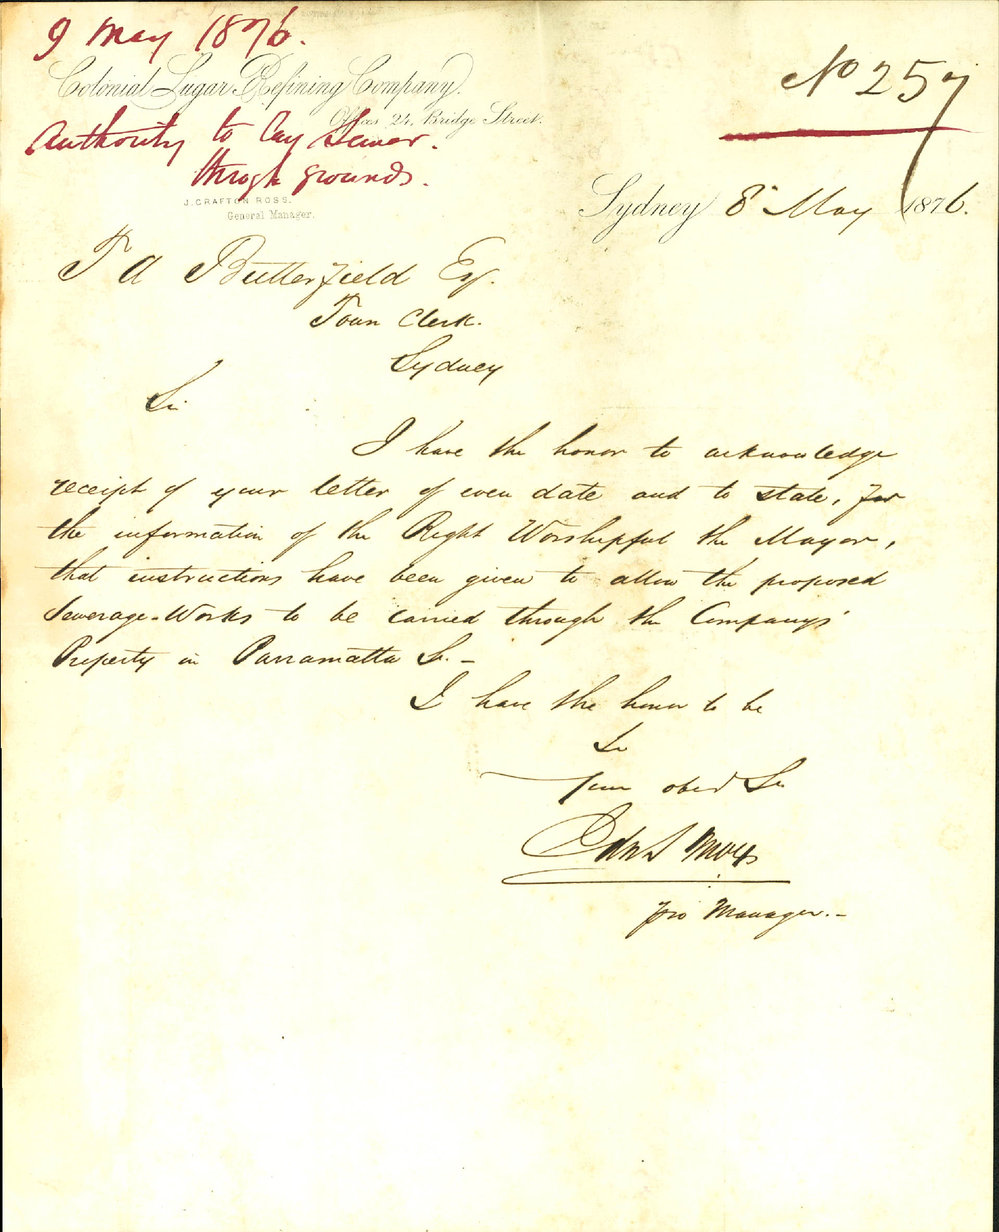 9 May 1876.
Colonial Sugar Refining Company.
Offices 24, Bridge Street.
Authority to lay Sewer.
throgh grounds.
J. GRAFTON ROSS.
General Manager.
No 257
Sydney 8th May 1876.
T A Butterfield Esq.
Town Clerk.
Sydney
Sir
I have the honor to acknowledge
receipt of your letter of even date and to state, for
the information of the Right Worshipful the Mayor,
that instructions have been given to allow the proposed
Sewerage-Works to be carried through the Company's
Property in Parramatta St. -
I have the honor to be
Sir
Your obed Sr
pro Manager. -